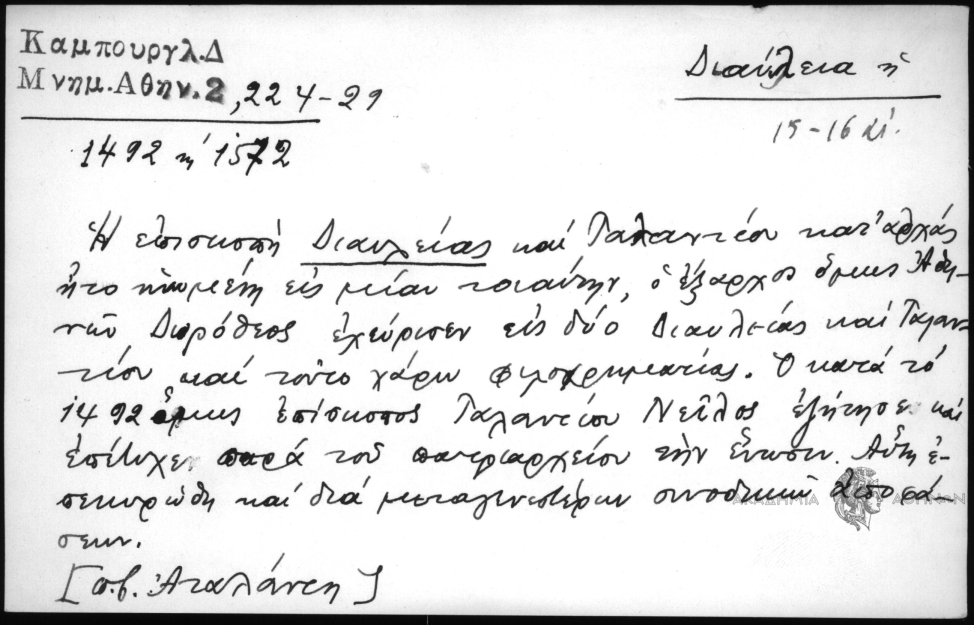 Καμπουργλ.Δ
Μνημ.Αθην.2, 224-29
Διαύλεια ἡ
15-16 αἰ.
1492 ἢ 1572
Ἡ ἐπισκοπὴ Διαυλείας καὶ Ταλαντίου κατ' ἀρχάς
ἦτο ἡνωμένη εἰς μίαν τοιαύτην, ὁ ἔξαρχος ὅμως Ἀθη-
νῶν Δωρόθεος ἐχώρισεν εἰς δύο Διαυλείας καὶ Ταλαν-
τίου καὶ τοῦτο χάριν φιλοχρηματίας. Ὁ κατὰ τὸ
1492 ὅμως ἐπίσκοπος Ταλαντίου Νεῖλος ἐζήτησε καὶ
ἐπέτυχε παρὰ τοῦ πατριαρχείου τὴν ἕνωσιν. Αὕτη ἐ-
πεκυρώθη καὶ διὰ μεταγενεστέρων συνοδικῶν ἀποφά-
σεων.
[π.β. Ἀταλάντη]
ΑΚΑΔΗΜΙΑ ΑΘΗΝΩΝ